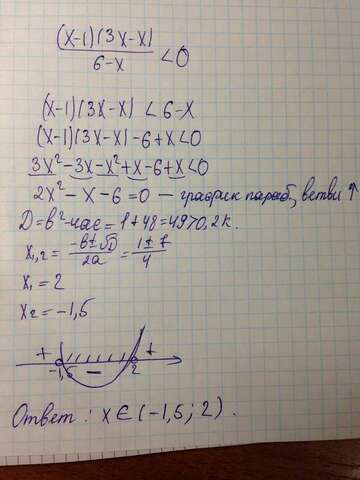 (x-1)(3x-x)
6-x
<0
(x-1)(3x-x) < 6-x
(x-1)(3x-x)-6+x<0
3x²-3x-x²+x-6+x<0
2x²-x-6=0 — график параб, ветви ↑
D=в²-4ас=1+48=49>0, 2к.
x₁,₂ = -в±√D / 2а = 1±7 / 4
x₁=2
x₂=-1,5
+ - +
-1,5 2
Ответ: x∈(-1,5; 2).